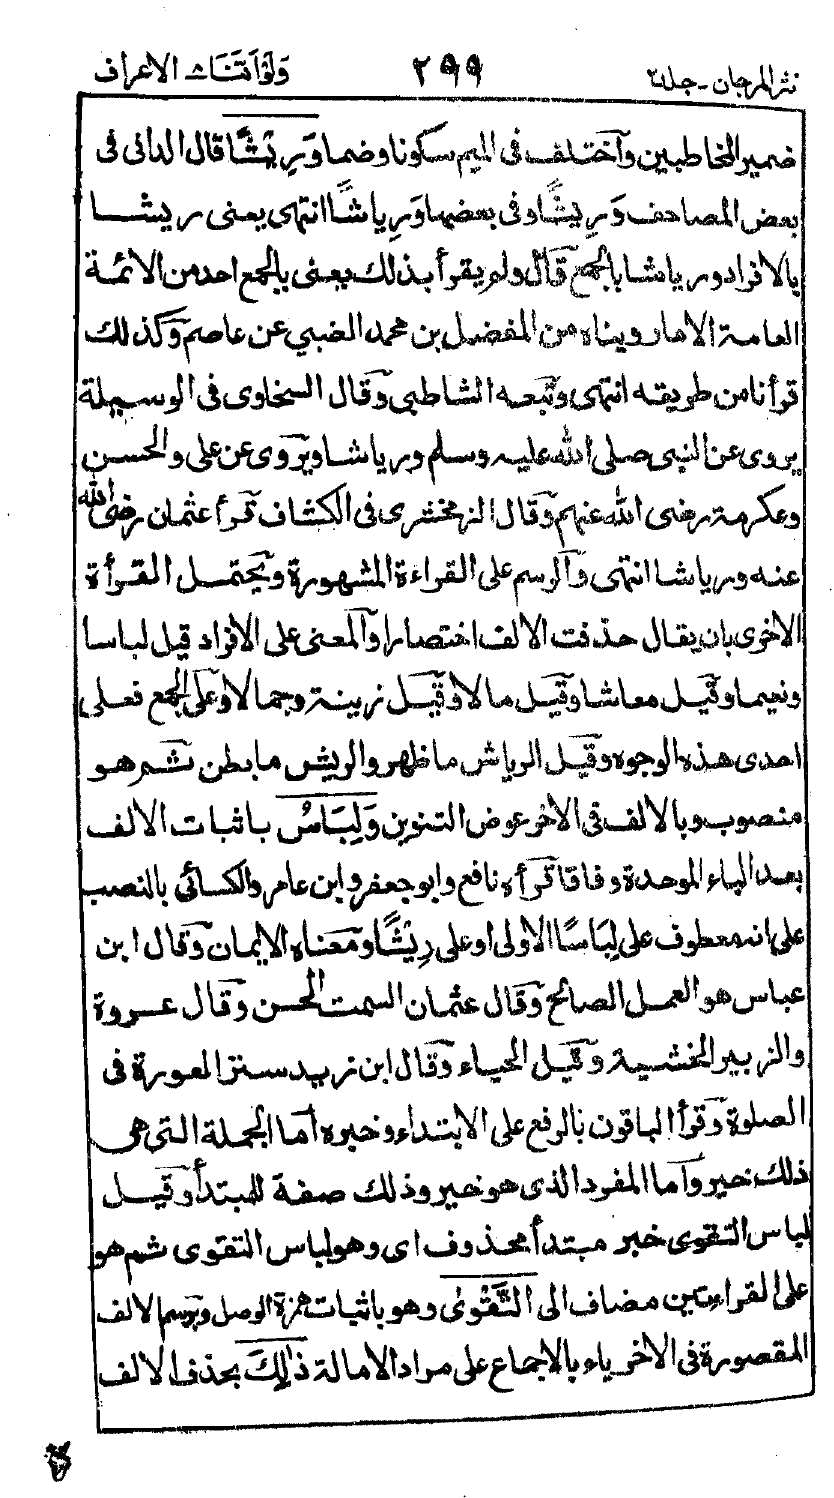 نثر المرجان - جلد ٢ ٢٩٩ وَلَوْ اَنَّنَا ٨ الاعراف
ضمير المخاطبين وآختلف فى الميم سكونا وضما وَرِيْشًا قال الدانى فى
بعض المصاحف وَرِيشًا وفى بعضها وَرِياشًا انتهى يعنى ريشا
بالافراد ورياشا بالجمع قال ولم يقرأ بذلك يعنى بالجمع احد من الائمة
العامة الا ما رويناه من المفضل بن محمد الضبي عن عاصم وكذلك
قرأنا من طريقه انتهى وتبعه الشاطبى وقال السخاوى فى الوسيلة
يروى عن النبى صلى الله عليه وسلم ورياشا ويروى عن على والحسن
وعكرمة رضى الله عنهم وقال الزمخشرى فى الكشاف قرأ عثمان رضى الله
عنه ورياشا انتهى وآلرسم على القراءة المشهورة ويحتمل القرأة
الاخرى بان يقال حذفت الالف اختصارا وآلمعنى على الافراد قيل لباسا
ونعيما وقيل معاشا وقيل مالا وقيل زينة وجمالا وعلى الجمع فعلى
احدى هذه الوجوه وقيل الرياش ما ظهر والريش ما بطن ثم هو
منصوب وبالالف فى الاخر عوض التنوين وَلِبَاسُ باثبات الالف
بعد الباء الموحدة وفاقا قرأه نافع وابو جعفر وابن عامر والكسائى بالنصب
على انه معطوف على لِبَاسًا الاولى او على رِيْشًا ومعناه الايمان وقال ابن
عباس هو العمل الصالح وقال عثمان السمت الحسن وقال عروة
والزبير الخشية وقيل الحياء وقال ابن زيد ستر العورة فى
الصلوة وقرأ الباقون بالرفع على الابتداء وخبره آما الجملة التى هى
ذلك خير وآما المفرد الذى هو خير وذلك صفة للمبتدأ وقيل
لباس التقوى خبر مبتدأ محذوف اى وهو لباس التقوى ثم هو
على القراءتين مضاف الى التَّقْوٰى وهو باثبات همزة الوصل وبرسم الالف
المقصورة فى الاخر ياء بالاجماع على مراد الامالة ذٰلِكَ بحذف الالف